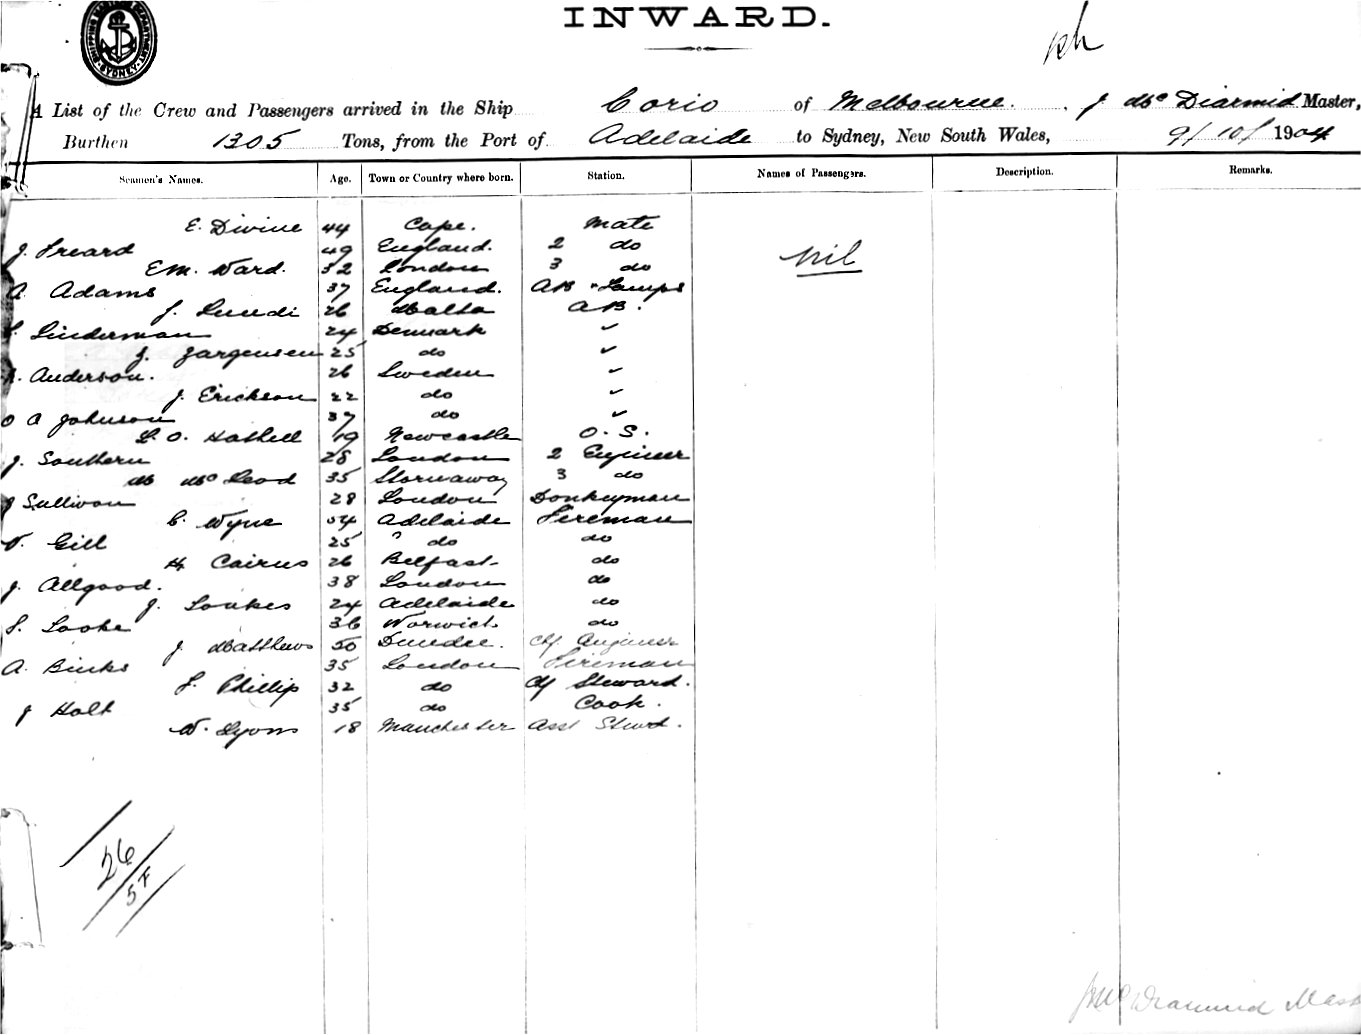 SHIPPING MASTER'S DEPARTMENT SYDNEY
INWARD.
A List of the Crew and Passengers arrived in the Ship Corio of Melbourne. J Mc Diarmid Master,
Burthen 1305 Tons, from the Port of Adelaide to Sydney, New South Wales, 9/10/1904
Seamen's Names. Age. Town or Country where born. Station. Names of Passengers. Description. Remarks.
E. Divine 44 Cape. Mate
J. Freard 49 England. 2 do
E M. Ward. 32 London 3 do
A Adams 37 England. AB & Lamps
J. Lundi 26 Malta AB.
Nil
Linderman 24 Denmark ✓
J. Jargensen 25 do ✓
Anderson. 26 Sweden ✓
J. Erickson 22 do ✓
O A Johnson 37 do ✓
L. O. Haskell 19 Newcastle O. S.
J. Southern 28 London 2 Engineer
M Mc Leod 35 Stornaway 3 do
J Sullivan 28 London Donkeyman
C. Wyne 54 Adelaide Fireman
Gill 25 " do do
H Cairns 26 Belfast do
J. Allgood. 38 London do
J. Loukes 24 Adelaide do
S. Looke 36 Norwich do
J Matthews 50 Dundee. Cf Engineer
A. Binks 35 London Fireman
F. Phillip 32 do Cf Steward.
J Holt 35 do Cook.
W. Lyons 18 Manchester Asst Stwd.
26
5 F
J Mc Diarmid Mast